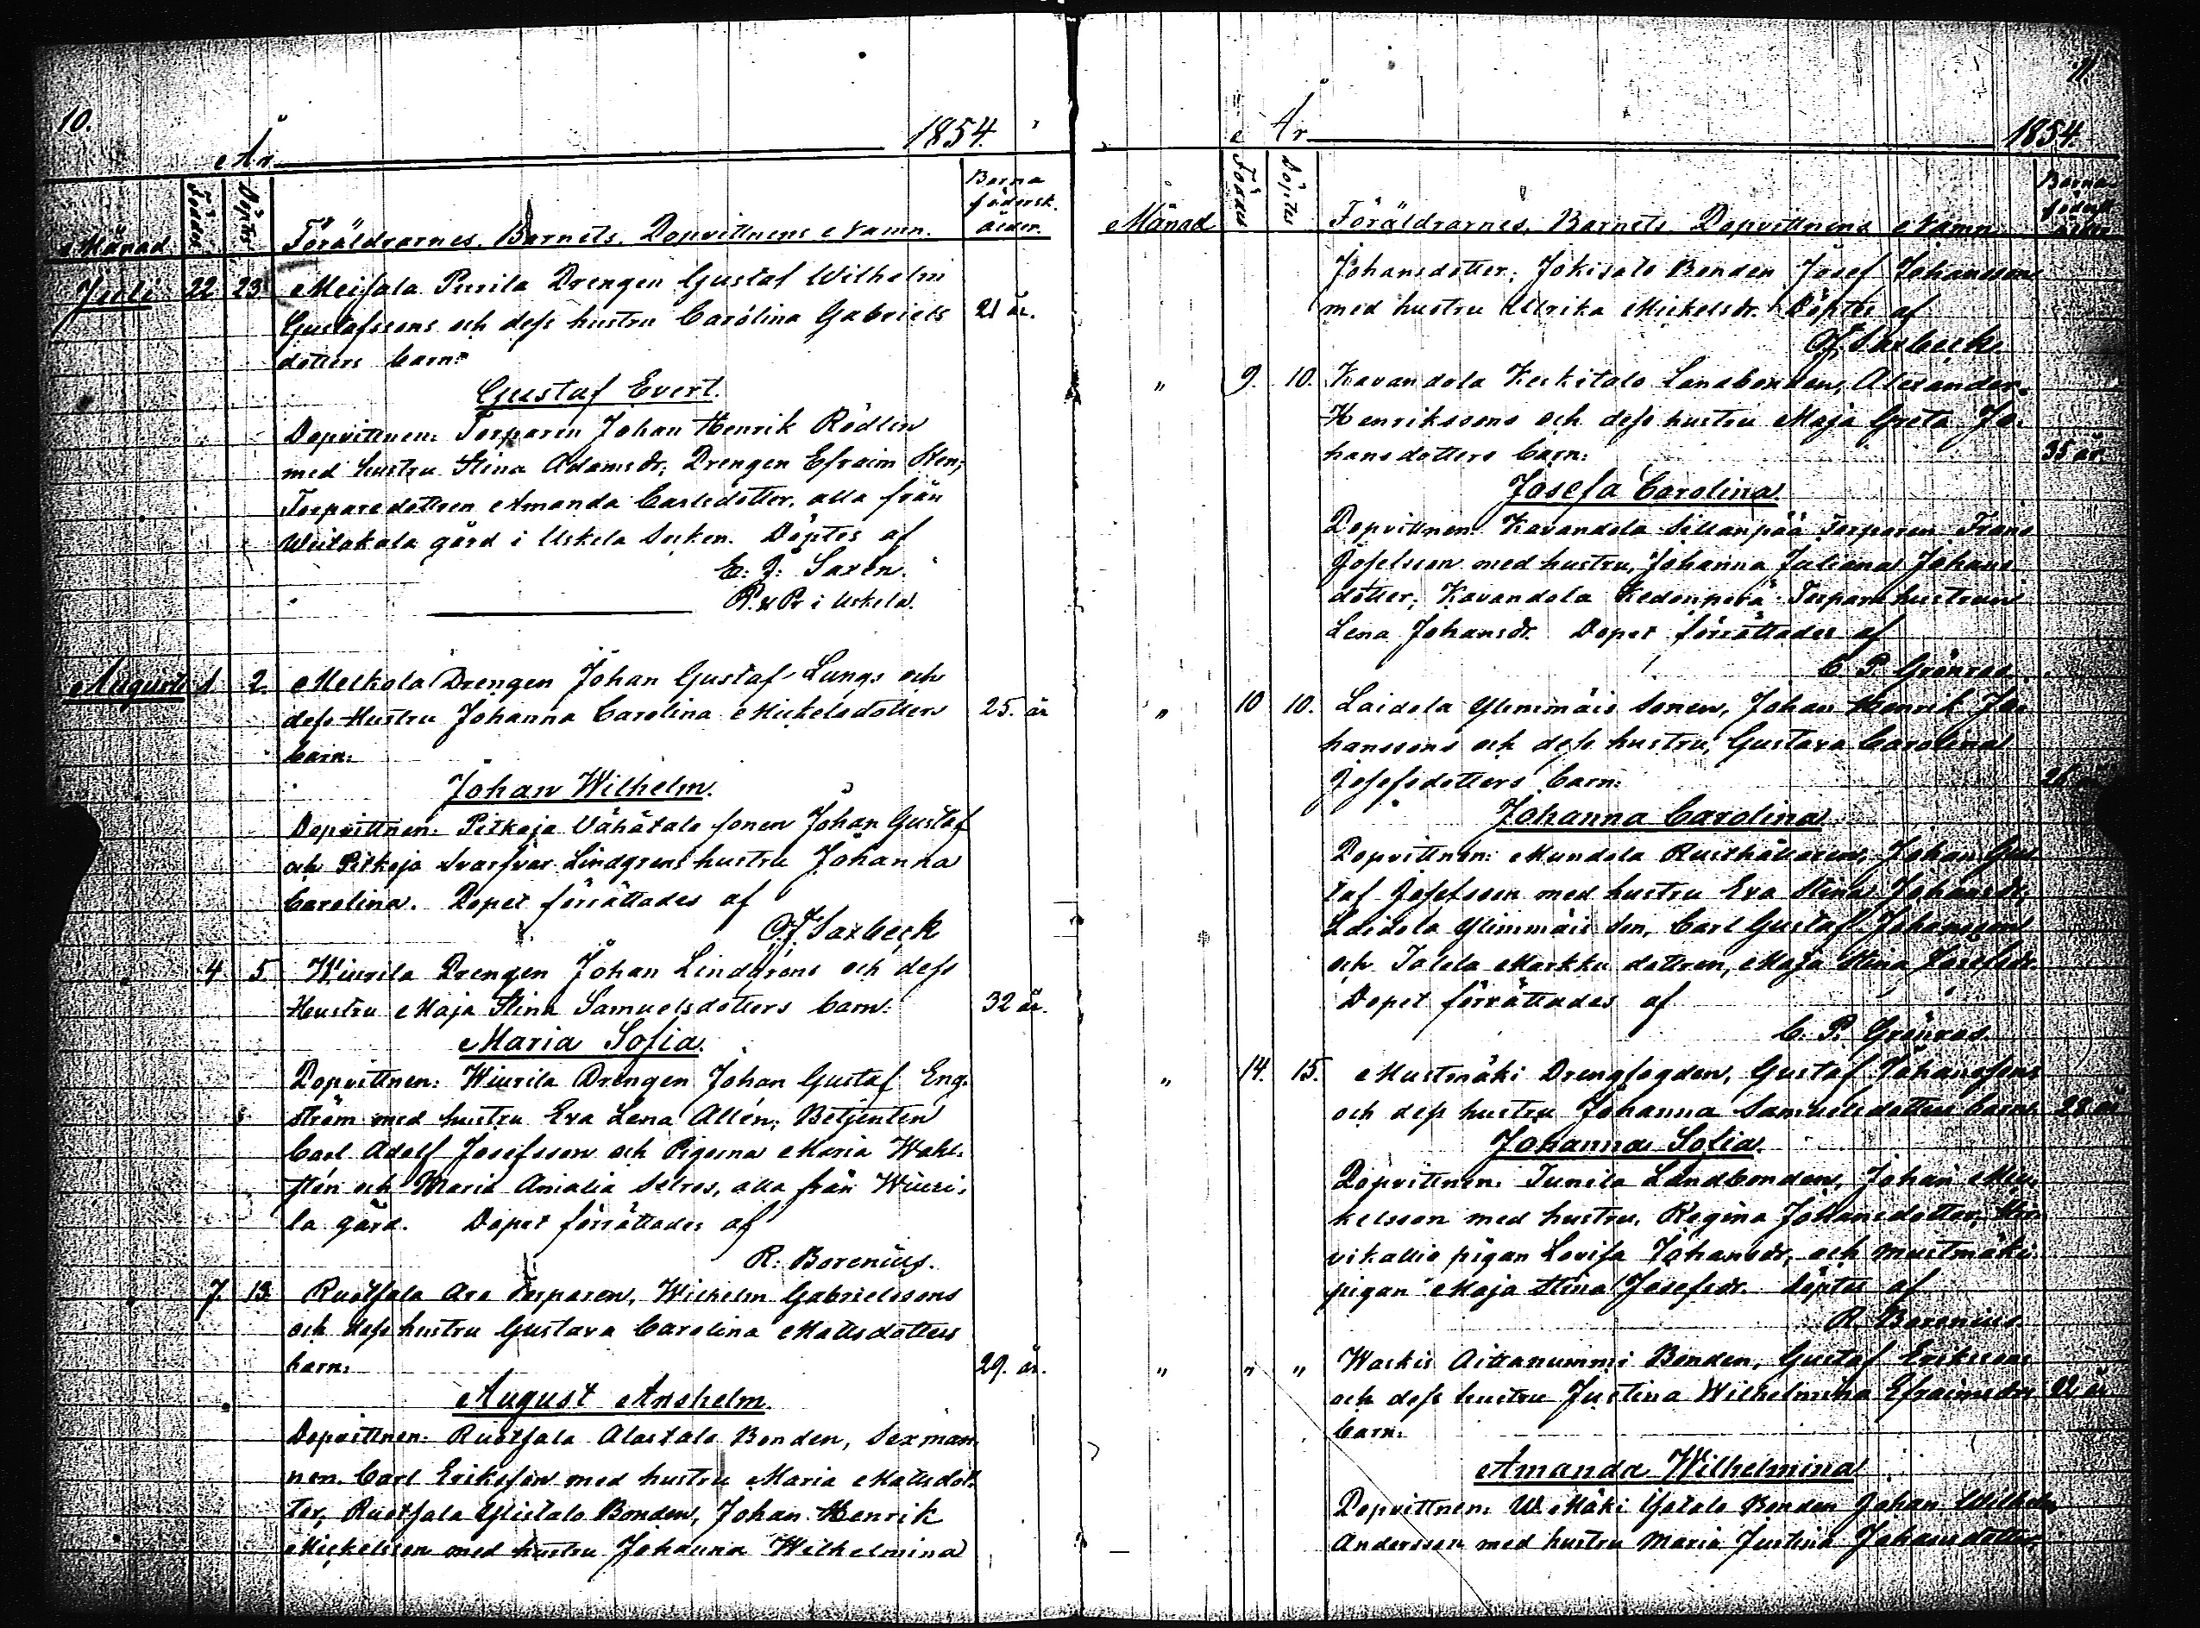 10.
År 1854.
Månad. Föddes Döptes Föräldrarnes, Barnets, Dopvittnens Namn. Barna födersk. ålder.
Juli 22 23 Meisala Purila Drengen Gustaf Wilhelm
Gustafssons och dess hustru Carolina Gabriels 21 år.
dotters barn:
Gustaf Evert.
Dopvittnen: Torparen Johan Henrik Rödlin
med hustru Stina Adamsdr, Drengen Efraim Ren,
Torparedottren Amanda Carlsdotter, alla från
gård i Uskela Socken. Döptes af
E. J. Saxén.
P. i Uskela.
Augusti 1 2. Melkola Drengen Johan Gustaf Lungs och
dess Hustru Johanna Carolina Mickelsdotters 25. år
barn:
Johan Wilhelm.
Dopvittnen: Pitkoja Vähätalo sonen Johan Gustaf
och Pitkoja Svarfvar Lindgrens hustru Johanna
Carolina. Dopet förrättades af
Saxbeck
4 5 Wiurila Drengen Johan Lindgrens och dess
Hustru Maja Stina Samuelsdotters barn: 32 år.
Maria Sofia.
Dopvittnen: Wiurila Drengen Johan Gustaf Eng-
ström med hustru Eva Lena Allén; Betjenten
Carl Adolf Josefsson och Pigorna Maria Wahl-
stén och Maria Amalia Selros, alla från Wiuri-
la gård. Dopet förrättades af
R. Borenius.
7. 13 Ruotsala Ara Torparen, Wilhelm Gabrielssons
och dess hustru Gustava Carolina Mattsdotters
barn: 29. år.
August Anshelm.
Dopvittnen: Ruotsala Alastalo Bonden, Sexman-
nen Carl Eriksson med hustru Maria Mattsdot-
ter, Ruotsala Ylistalo Bonden, Johan Henrik
Mickelsson med hustru Johanna Wilhelmina
11.
År 1854.
Månad Föddes Döptes Föräldrarnes, Barnets, Dopvittnens Namn Barna födersk. ålder
Johansdotter; Jokisalo Bonden Josef Johansson
med hustru Ulrika Mickelsdr. Döptes af
Saxbeck.
" 9. 10. Kavandola Keskitalo Landbonden, Alexander
Henrikssons och dess hustru Maja Greta Jo-
hansdotters barn: 35 år
Josefa Carolina.
Dopvittnen: Kavandola Sillanpää Torparen Frans
Josefsson med hustru, Johanna Juliana Johans
dotter; Kavandola Kedonperä Torpare hustrun
Lena Johansdr. Dopet förrättades af
C. P. Grönros.
" 10 10. Laidola Ylimmäis Sonen, Johan Henrik Jo-
hanssons och dess hustru, Gustava Carolina
Josefsdotters barn:
Johanna Carolina
Dopvittnen: Mundola Rusthållaren, Johan Gus-
taf Josefsson med hustru Eva Stina Johansdr,
Laidola Ylimmäis Son, Carl Gustaf Johansson
och Markku dottren, Maja Stina Josefsdr.
Dopet förrättades af
C. P. Grönros.
" 14. 15. Mustmäki Drengfogden, Gustaf Johanssons
och dess hustru Johanna Samuelsdotters barn: 28 år
Johanna Sofia.
Dopvittnen: Tunila Landbonden, Johan Mic-
kelsson med hustru, Regina Johansdotter;
vikallio pigan Lovisa Johansdr, och Mustmäki
pigan Maja Stina Josefsdr. Döptes af
R. Borenius.
" " " Waskio Aittanummi Bonden, Gustaf Erikssons
och dess hustru Justina Wilhelmina Efraimsdrs år
barn:
Amanda Wilhelmina
Dopvittnen: W. Mäki Yötalo Bonden Johan Wilhelm
Andersson med hustru Maria Justina Johansdotter,